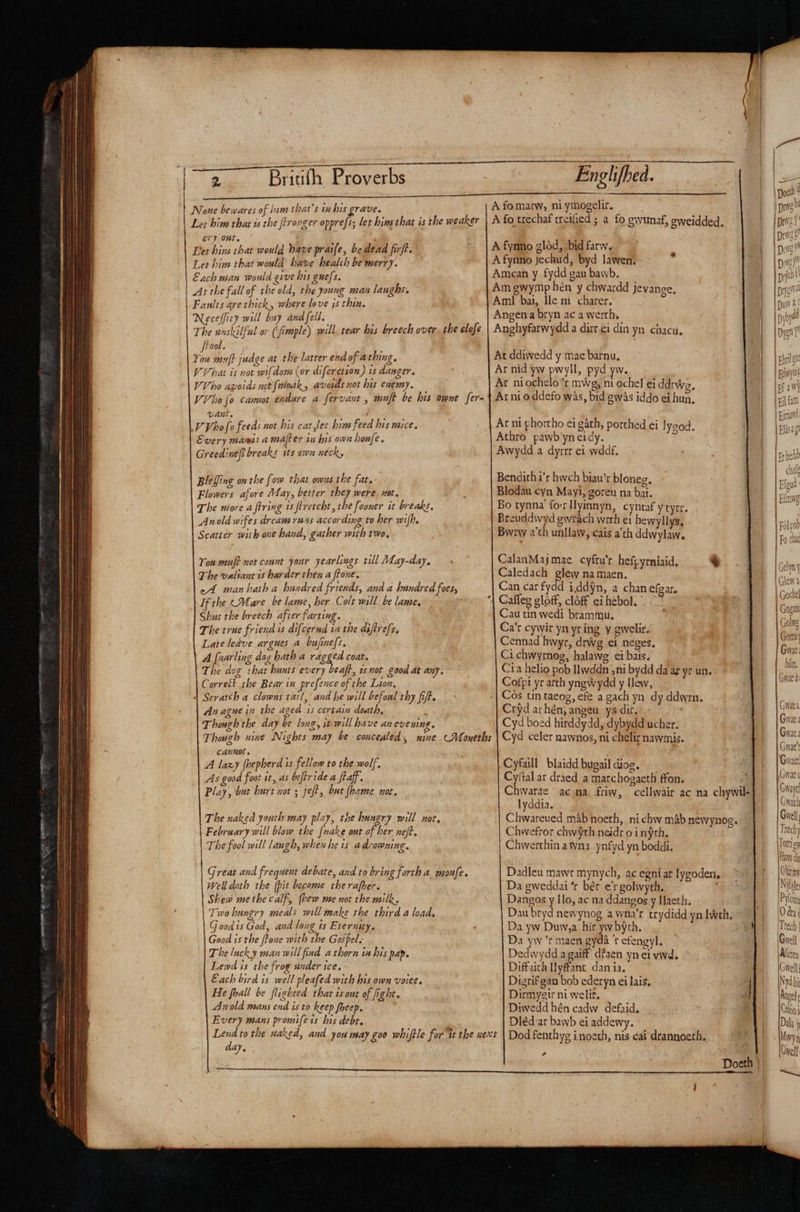 2 Britiſh Proverbs
None bewares of him that's in his grave.
Let him that is the ſtronger oppreſs; let him that is the weaker
cry out.
Let him that would have praiſe, be dead firſt.
Let him that would have health be merry.
Each man would give his gueſs.
At the fall of the old, the young man laughs.
Faults are thick, where love is thin.
Neceſſity will buy and ſell.
The unskilful or (ſimple) will tear his breech over the cloſe
ſtool.
You muſt judge at the latter end of a thing.
VVhat is not wiſdom (or diſcretion) is danger.
VVho avoids not ſmoak, avoids not his enemy.
VVho ſo cannot endure a ſervant, muſt be his owne ſer-
vant.
VVho ſo feeds not his cat, let him feed his mice.
Every man is a maſter in his own houſe.
Greedineſs breaks its own neck.
Bleſſing on the ſow that owns the fat.
Flowers afore May, better they were not.
The more a ſtring is ſtretcht, the ſooner it breaks.
An old wifes dream runs according to her wiſh.
Scatter with one hand, gather with two.
You muſt not count your yearlings till May-day.
The valiant is harder then a ſtone.
A man hath a hundred friends, and a hundred foes,
If the Mare be lame, her Colt will be lame.
Shut the breech after farting.
The true friend is diſcernd in the diſtreſs.
Late leave argues a buſineſs.
A ſnarling dog hath a ragged coat.
The dog that hunts every beaſt, is not good at any.
Correct the Bear in preſence of the Lion.
Scratch a clowns tail, and he will befoul thy fiſt.
An ague in the aged is certain death.
Though the day be long, it will have an evening.
Though nine Nights may be concealed, nine Moneths
cannot.
A lazy ſhepherd is fellow to the wolf.
As good foot it, as beſtride a ſtaff.
Play, but hurt not; jeſt, but ſhame not.
The naked youth may play, the hungry will not.
February will blow the ſnake out of her neſt.
The fool will laugh, when he is a drowning.
Great and frequent debate, and to bring forth a mouſe.
Well doth the ſpit become the raſher.
Shew me the calf, ſhew me not the milk.
Two hungry meals will make the third a load.
Good is God, and long is Eternity.
Good is the ſtone with the Goſpel.
The lucky man will find a thorn in his pap.
Lewd is the frog under ice.
Each bird is well pleaſed with his own voice.
He ſhall be ſlighted that is out of ſight.
An old mans end is to keep ſheep.
Every mans promiſe is his debt.
Lend to the naked, and you may goe whiſtle for it the next
day.
Engliſhed.
A fo marw, ni ymogelir.
A fo trechaf treiſied; a fo gwunaf, gweidded.
A fynno glôd, bid farw.
A fynno jechud, byd lawen.
Amcan y fydd gau bawb.
Am gwymp hên y chwardd jevange.
Aml bai, lle ni charer.
Angen a bryn ac a werth,
Anghyfarwydd a dirr ei din yn chacu.
At ddiwedd y mae barnu,
Ar nid yw pwyll, pyd yw.
Ar ni ochelo 'r mŵg, ni ochel ei ddrŵg.
Ar ni o ddefo wâs, bid gwâs iddo ei hun.
Ar ni phorrho ei gâth, porthed ei lygod.
Athro pawb yn eidy.
Awydd a dyrrr ei wddf.
Bendith i'r hwch biau'r bloneg.
Blodau cyn Mayi, goreu na bai.
Bo tynna' for llyinnyn, cyntaf y tyrr.
Breuddwyd gwrâch wrth ei hewyllys,
Bwrw a'ch unllaw, cais a'th ddwylaw.
CalanMaj mae cyfru'r heſpyrniaid.
Caledach glew na maen.
Can car fydd i ddŷn, a chan eſgar.
Caſſeg glôff, clôff ei hebol.
Cau tin wedi brammu.
Ca'r cywir yn yr ing y gwelir.
Cennad hwyr, drŵg ei neges.
Ci chwyrnog, halawg ei bais.
Ci a helio pob llwddn, ni bydd da ar yr un.
Coſpi yr arth yngŵydd y llew,
Côs tin taeog, efe a gach yn dy ddwrn.
Crŷd ar hên, angeu ys dir.
Cyd boed hirddydd, dybydd ucher.
Cyd celer nawnos, ni chelir nawmis.
Cyfaill blaidd bugail diog.
Cyſtal ar draed a marchogaeth ffon.
Chwarae ac na friw, cellwair ac na chywil-
lyddia.
Chwareued mâb noeth, ni chw mâb newynog.
Chwefror chwŷth neidr o i nŷth.
Chwerthin a wna ynfyd yn boddi.
Dadleu mawr mynych, ac egni ar lygoden,
Da gweddai 'r bêr e'r golwyth.
Dangos y llo, ac na ddangos y llaeth.
Dau bryd newynog a wna'r trydidd yn lŵth.
Da yw Duw, a hir yw bŷth.
Da yw 'r maen gydâ 'r efengyl.
Dedwydd a gaiff draen yn ei vwd.
Diffaith llyffant dan ia.
Digrif gan bob ederyn ei lais.
Dirmygir ni welir.
Diwedd hên cadw defaid.
Dlêd ar bawb ei addewy.
Dod fenthyg i noeth, nis cai drannoeth.
Doeth